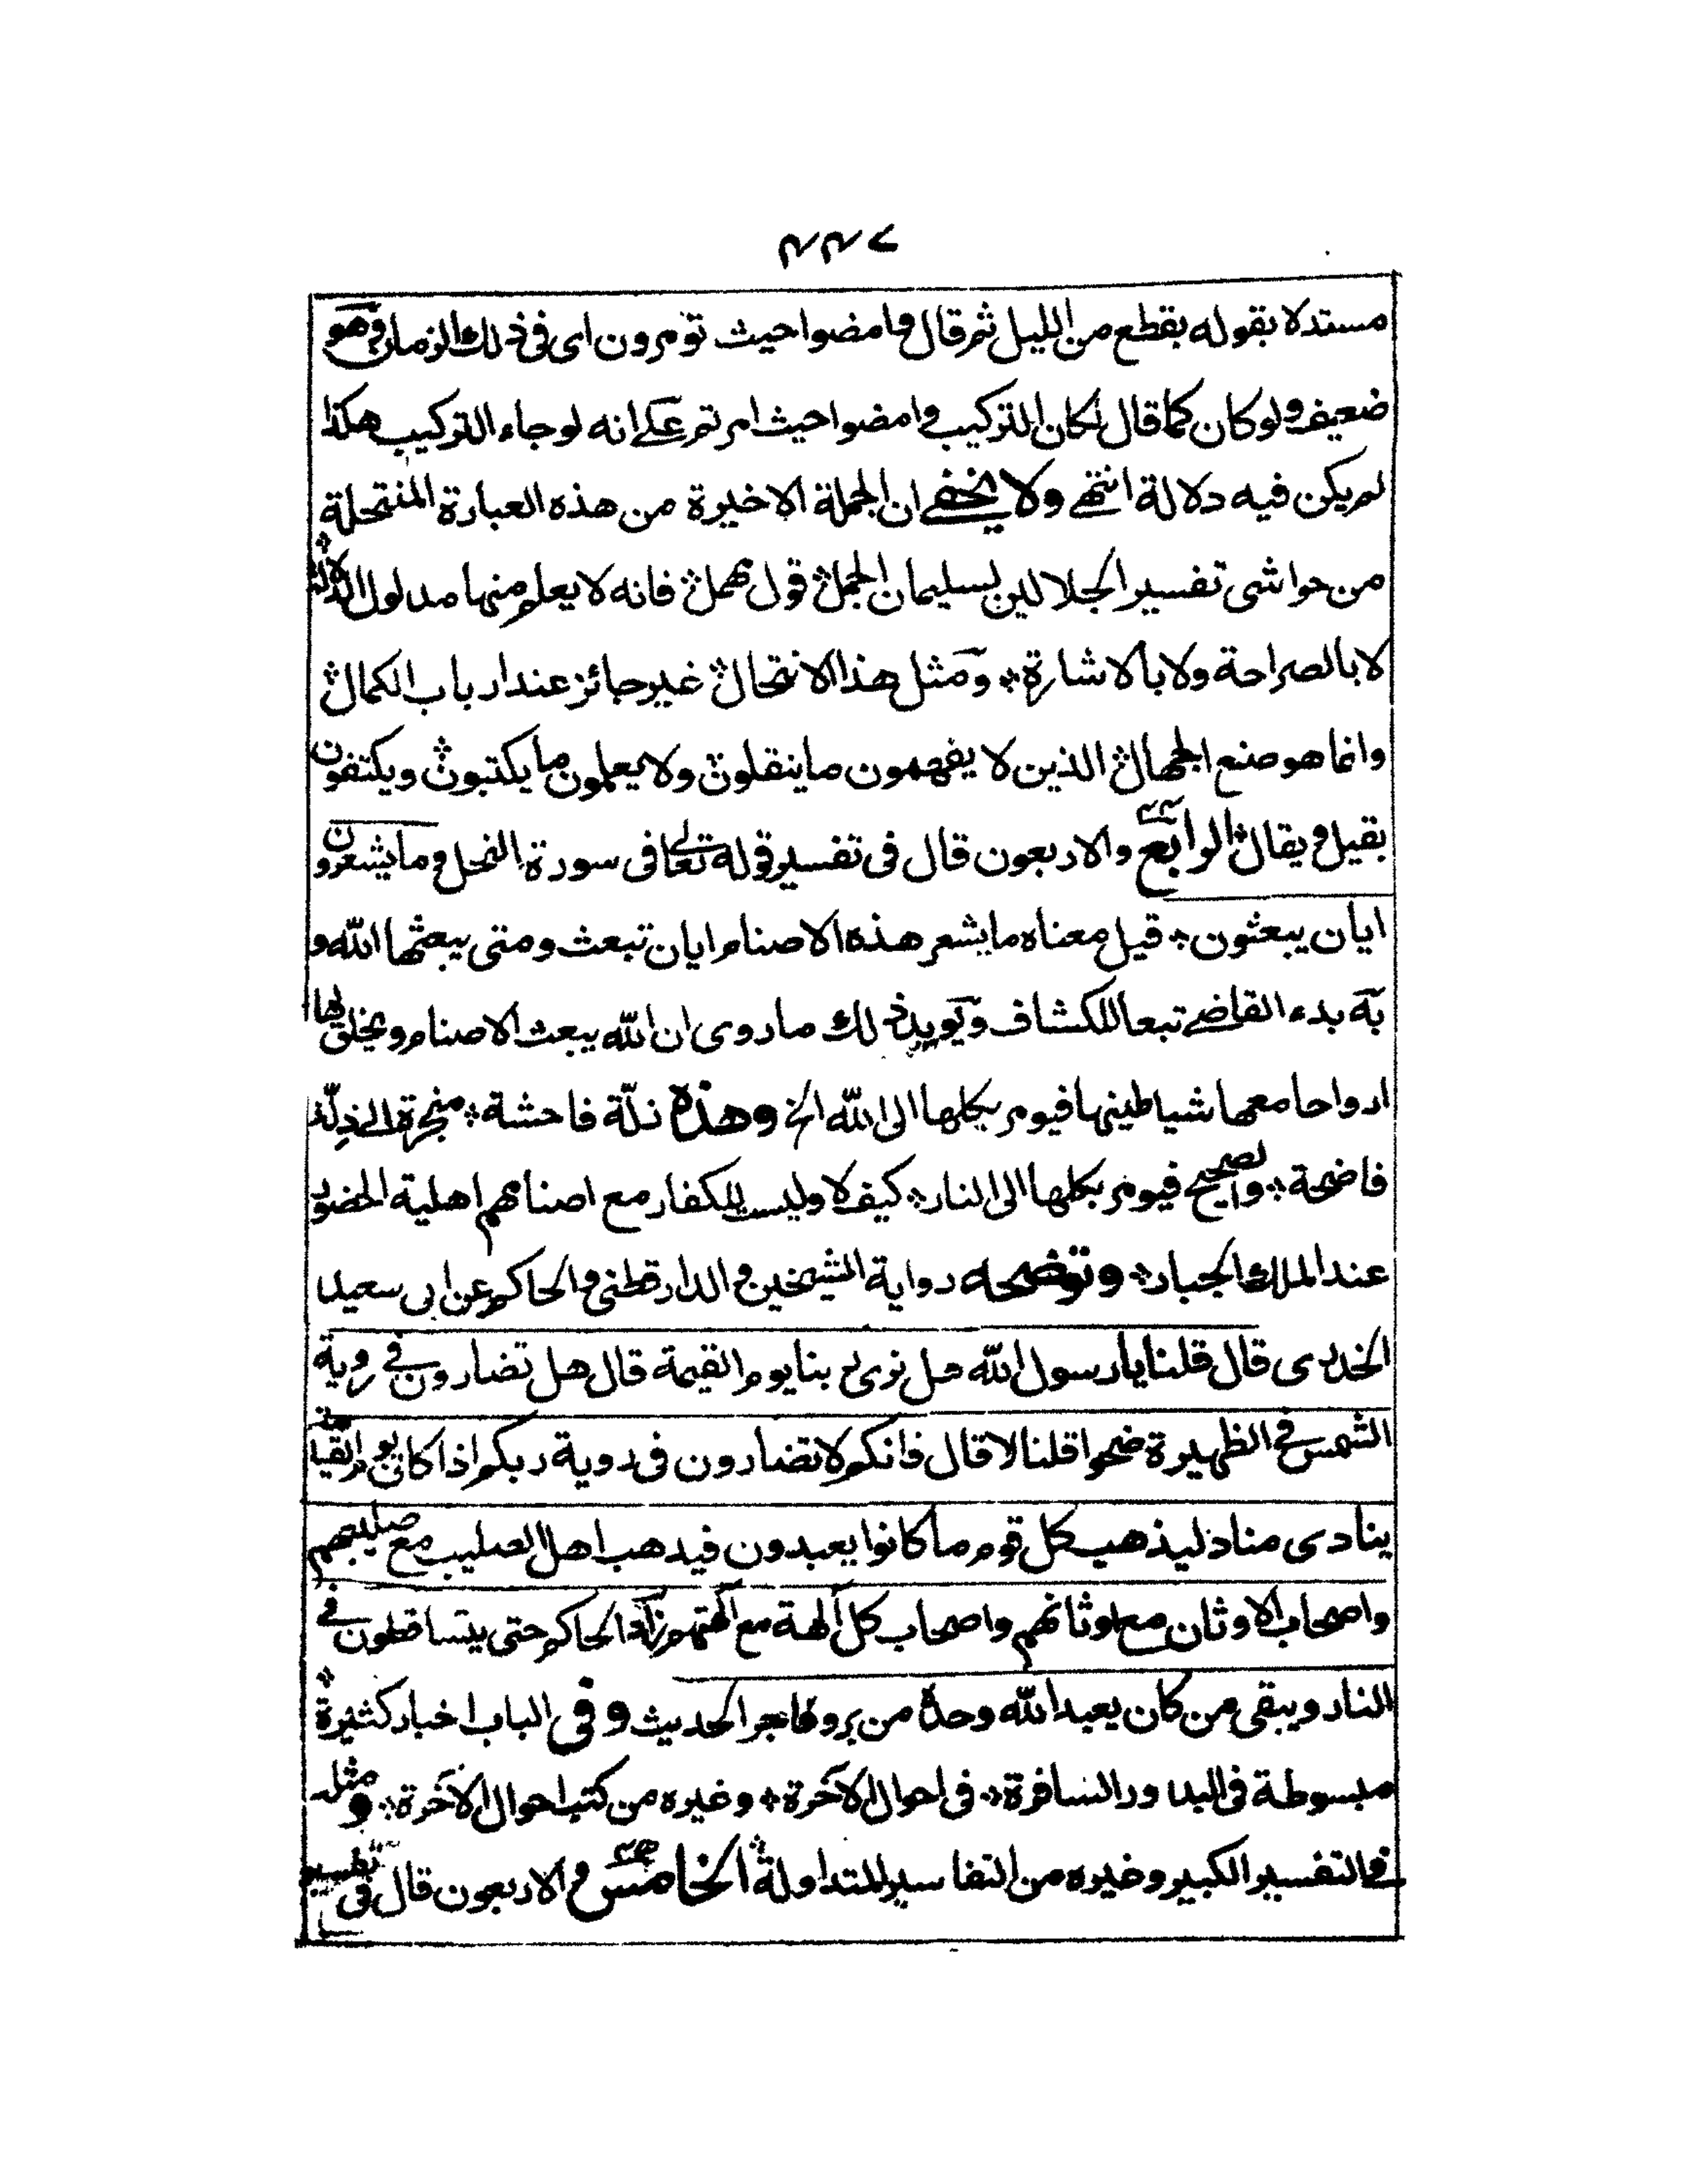 ٤٤٧
مستدلا بقوله بقطع من الليل ثم قال وامضوا حيث تؤمرون اى فى ذلك الزمان وهو
ضعيف ولو كان كما قال لكان التركيب وامضوا حيث امرتم على انه لو جاء التركيب هكذا
لم يكن فيه دلالة انتهى ولا يخفى ان الجملة الاخيرة من هذه العبارة المنتحلة
من حواشى تفسير الجلالين لسليمان الجمل قول مهمل فانه لا يعلم منها مدلول الدلالة
لا بالصراحة ولا بالاشارة ومثل هذا الانتحال غير جائز عند ارباب الكمال
وانما هو صنع الجهال الذين لا يفهمون ما ينقلون ولا يعلمون ما يكتبون ويكتفون
بقيل ويقال الرابع والاربعون قال فى تفسير قوله تعالى فى سورة النحل وما يشعرون
ايان يبعثون قيل معناه ما يشعر هذه الاصنام ايان تبعث ومتى يبعثها الله و
به بدء القاضى تبعا للكشاف ويويد ذلك ما روى ان الله يبعث الاصنام ويخلق لها
ارواحا معها شياطينها فيومر بكلها الى الله الخ وهذه زلة فاحشة منجرة الى ذلة
فاضحة والصحيح فيومر بكلها الى النار كيف لا وليست للكفار مع اصنامهم اهلية الحضور
عند الملك الجبار وتوضحه رواية الشيخين والدارقطنى والحاكم عن ابى سعيد
الخدرى قال قلنا يا رسول الله هل نرى ربنا يوم القيمة قال هل تضارون فى روية
الشمس فى الظهيرة ضحوا قلنا لا قال فانكم لا تضارون فى روية ربكم اذا كان يوم القيامة
ينادى مناد ليذهب كل قوم ما كانوا يعبدون فيذهب اهل الصليب مع صليبهم
واصحاب الاوثان مع اوثانهم واصحاب كل آلهة مع آلهتهم زاد الحاكم حتى يتساقطون فى
النار ويبقى من كان يعبد الله وحده من بر وفاجر الحديث وفى الباب اخبار كثيرة
مبسوطة فى البدور السافرة فى احوال الآخرة وغيره من كتب احوال الآخرة ومثله
فى التفسير الكبير وغيره من التفاسير المتداولة الخامس والاربعون قال فى تفسير